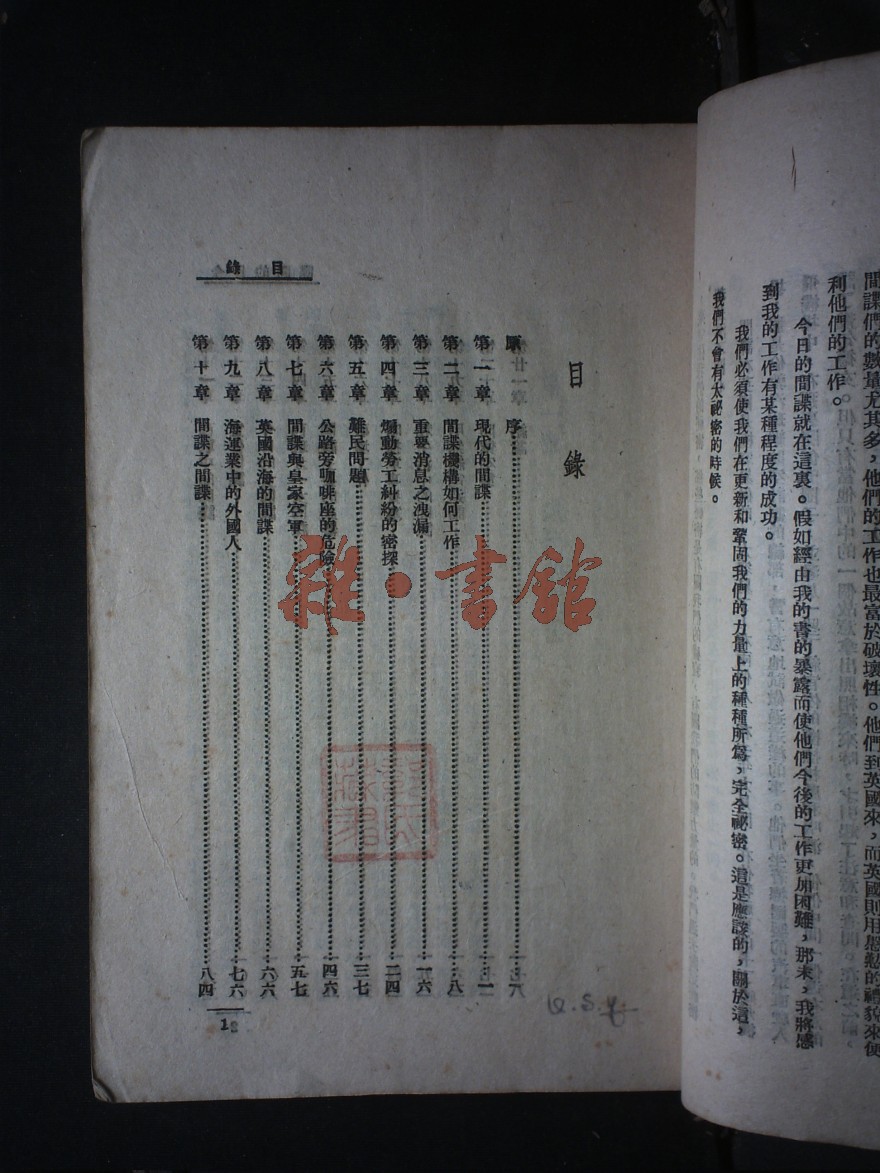 間諜們的數量尤其多，他們的工作也最富於破壞性。他們到英國來，而英國則用慇懃的禮貌來便
利他們的工作。
今日的間諜就在這裏。假如經由我的書的暴露而使他們今後的工作更加困難，那末，我將感
到我的工作有某種程度的成功。
我們必須使我們在更新和鞏固我們的力量上的種種所爲，完全祕密。這是應該的，關於這，
我們不會有太祕密的時候。
目錄
目錄
序
第一章 現代的間諜 一
第二章 間諜機構如何工作 八
第三章 重要消息之洩漏 一六
第四章 煽動勞工糾紛的密探 二四
第五章 難民問題 三七
第六章 公路旁咖啡座的危險 四六
第七章 間諜與皇家空軍 五七
第八章 英國沿海的間諜 六六
第九章 海運業中的外國人 七六
第十章 間諜之間諜 八四
1
雜·書館